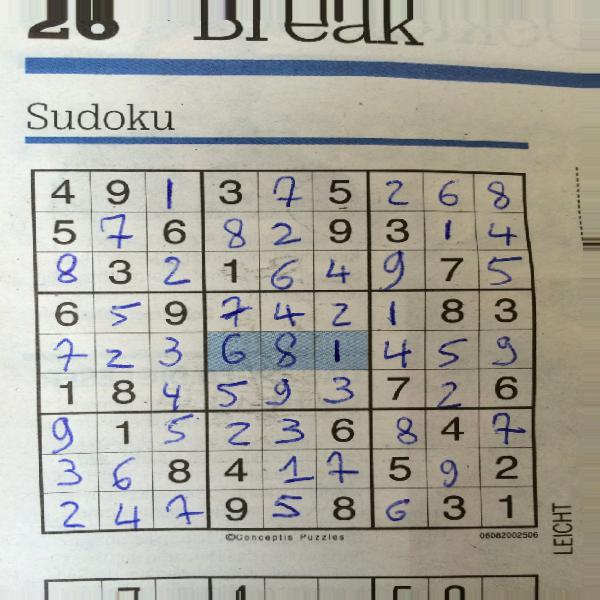 Break
Sudoku
4 9 1 3 7 5 2 6 8
5 7 6 8 2 9 3 1 4
8 3 2 1 6 4 9 7 5
6 5 9 7 4 2 1 8 3
7 2 3 6 8 1 4 5 9
1 8 4 5 9 3 7 2 6
9 1 5 2 3 6 8 4 7
3 6 8 4 1 7 5 9 2
2 4 7 9 5 8 6 3 1
©Conceptis Puzzles 06082002506
LEICHT